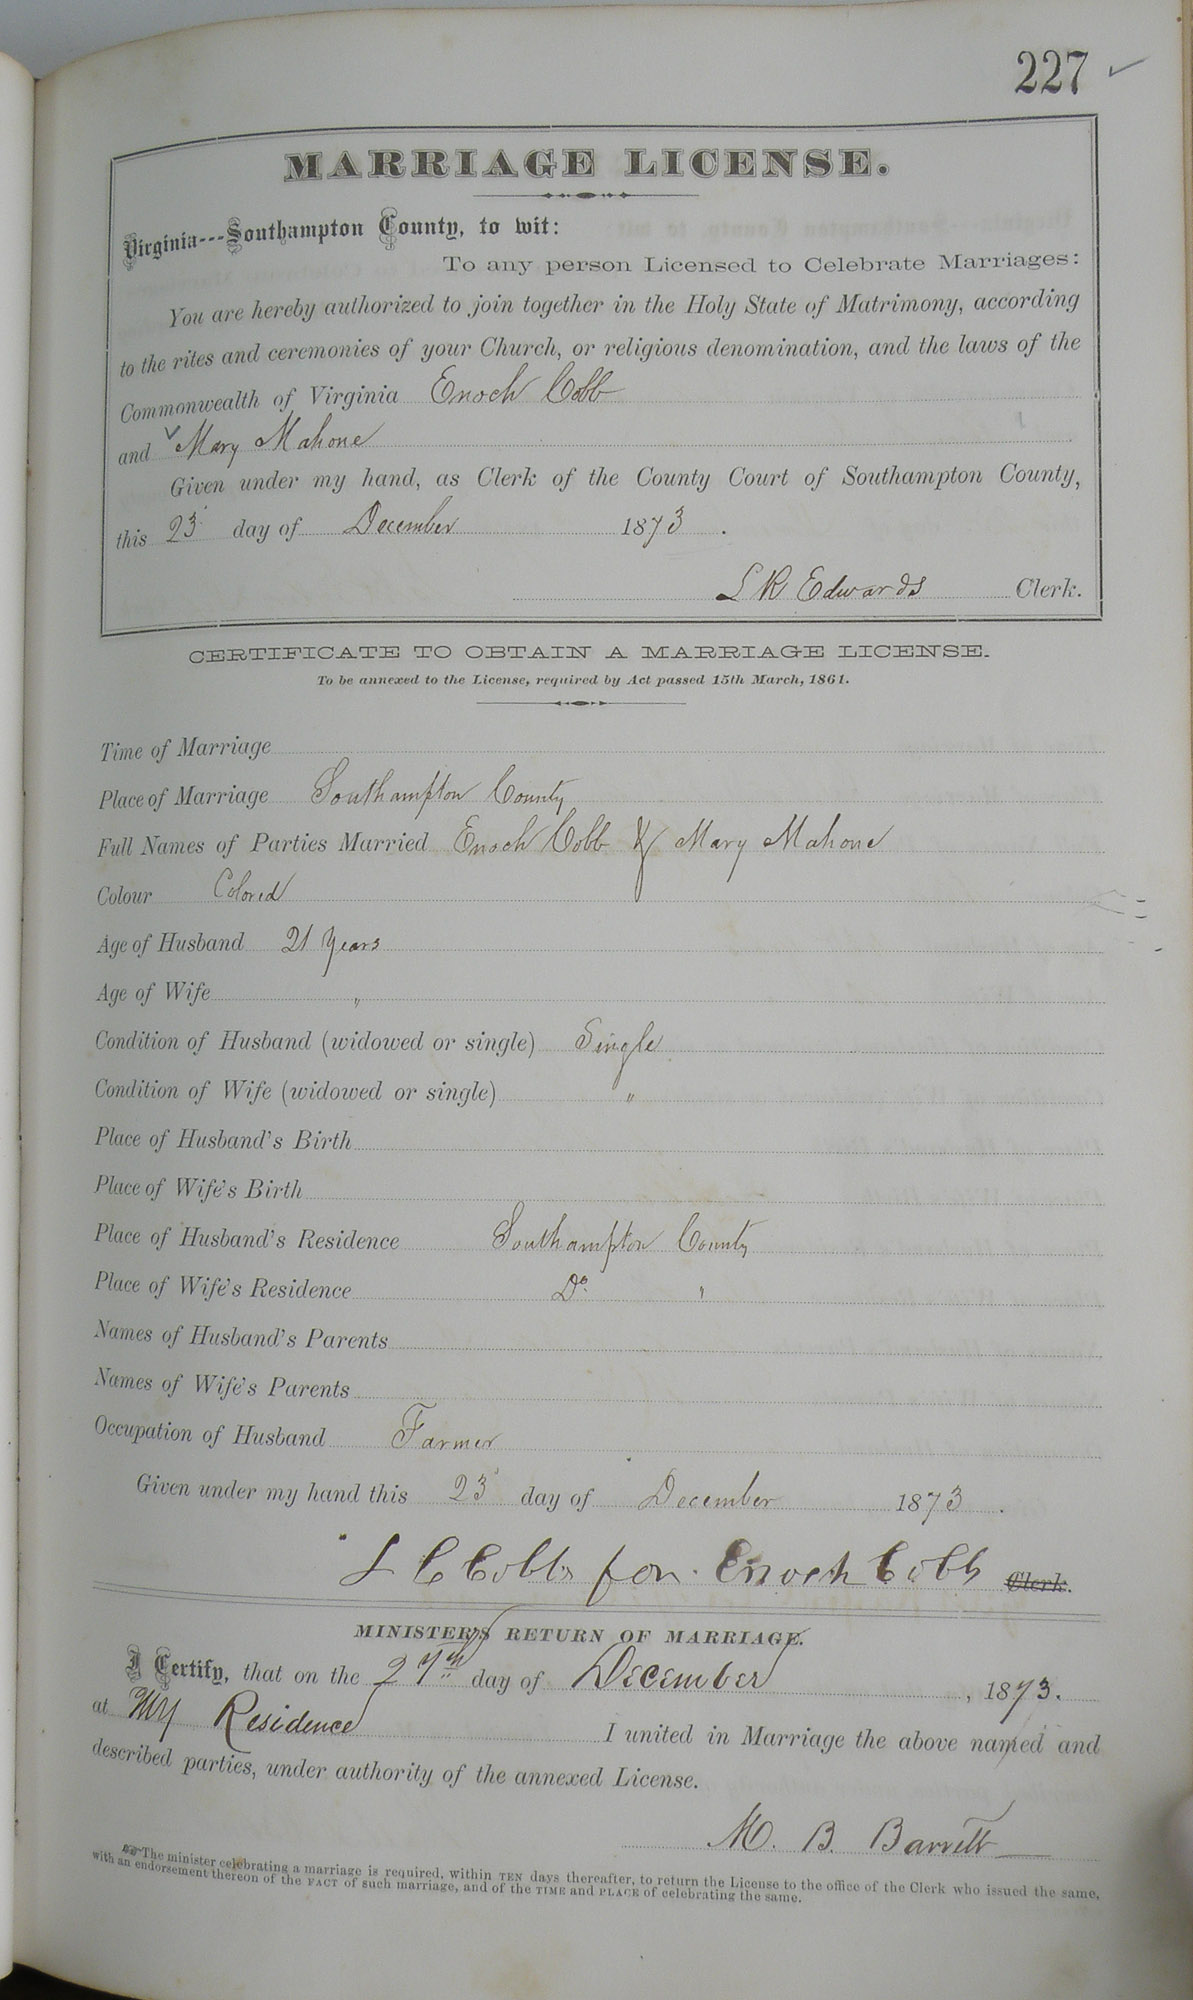 227
MARRIAGE LICENSE.
Virginia---Southampton County, to wit:
To any person Licensed to Celebrate Marriages:
You are hereby authorized to join together in the Holy State of Matrimony, according
to the rites and ceremonies of your Church, or religious denomination, and the laws of the
Commonwealth of Virginia Enoch Cobb
and Mary Mahone
Given under my hand, as Clerk of the County Court of Southampton County,
this 23 day of December 1873.
L R Edwards Clerk.
CERTIFICATE TO OBTAIN A MARRIAGE LICENSE.
To be annexed to the License, required by Act passed 15th March, 1861.
Time of Marriage
Place of Marriage Southampton County
Full Names of Parties Married Enoch Cobb & Mary Mahone
Colour Colored
Age of Husband 21 Years
Age of Wife "
Condition of Husband (widowed or single) Single
Condition of Wife (widowed or single) "
Place of Husband's Birth
Place of Wife's Birth
Place of Husband's Residence Southampton County
Place of Wife's Residence Do "
Names of Husband's Parents
Names of Wife's Parents
Occupation of Husband Farmer
Given under my hand this 23 day of December 1873.
L C Cobbs for Enoch Cobb Clerk.
MINISTER'S RETURN OF MARRIAGE.
I Certify, that on the 27th day of December, 1873.
at My Residence I united in Marriage the above named and
described parties, under authority of the annexed License.
M. B. Barrett
The minister celebrating a marriage is required, within TEN days thereafter, to return the License to the office of the Clerk who issued the same,
with an endorsement thereon of the FACT of such marriage, and of the TIME and PLACE of celebrating the same.